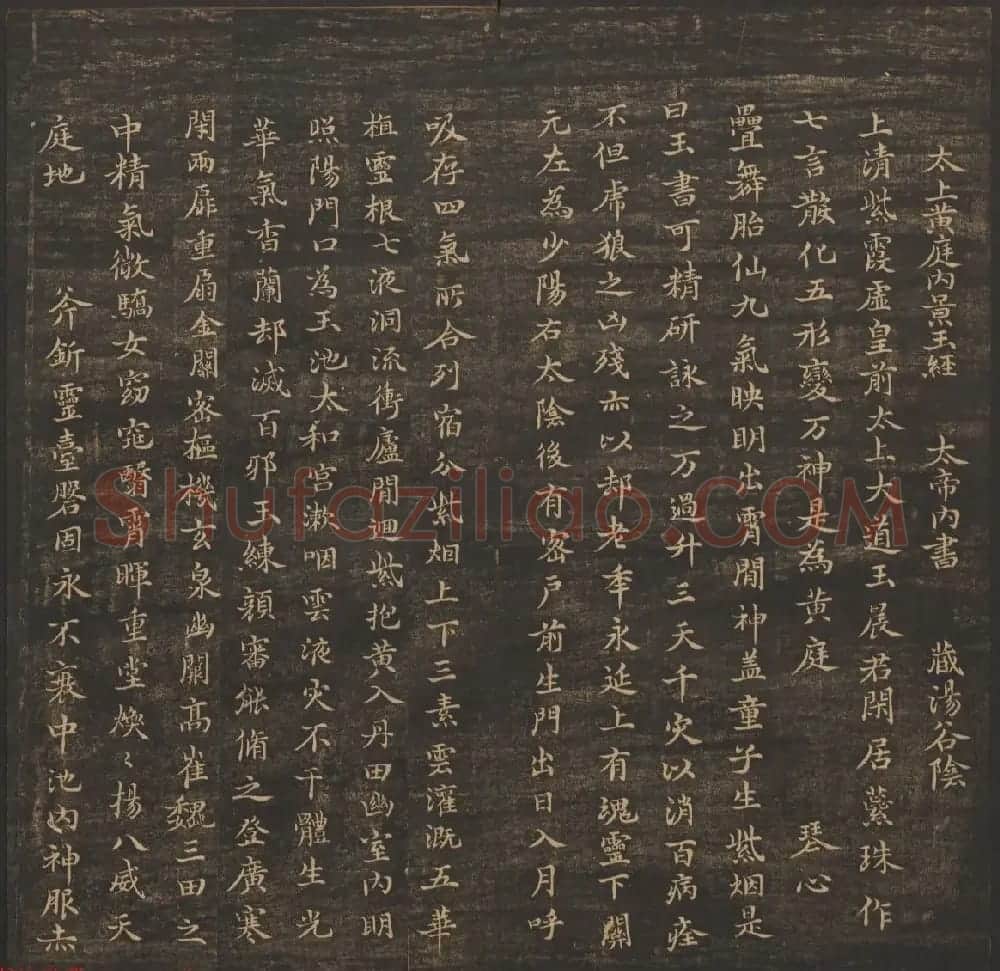 太上黄庭内景玉經　太帝内書　藏湯谷陰
上清紫霞虛皇前太上大道玉晨君閑居蘂珠作
七言散化五形變万神是為黄庭　琴心
疊舞胎仙九氣映明出霄間神盖童子生紫烟是
曰玉書可精研詠之万過升三天千灾以消百病痊
不但虎狼之凶殘亦以却老年永延上有魂靈下關
元左為少陽右太陰後有密戶前生門出日入月呼
吸存四氣所合列宿分紫烟上下三素雲灌溉五華
植靈根七液洞流衝廬間迴紫抱黄入丹田幽室内明
照陽門口為玉池太和宮漱咽雲液灾不干體生光
華氣香蘭却滅百邪玉練顔審能脩之登廣寒
閑兩扉重扇金關密樞機玄泉幽關高崔巍三田之
中精氣微驕女窈窕翳霄暉重堂煥〻揚八威天
庭地　斧釿靈臺磐固永不衰中池内神服赤
Shufaziliao.COM